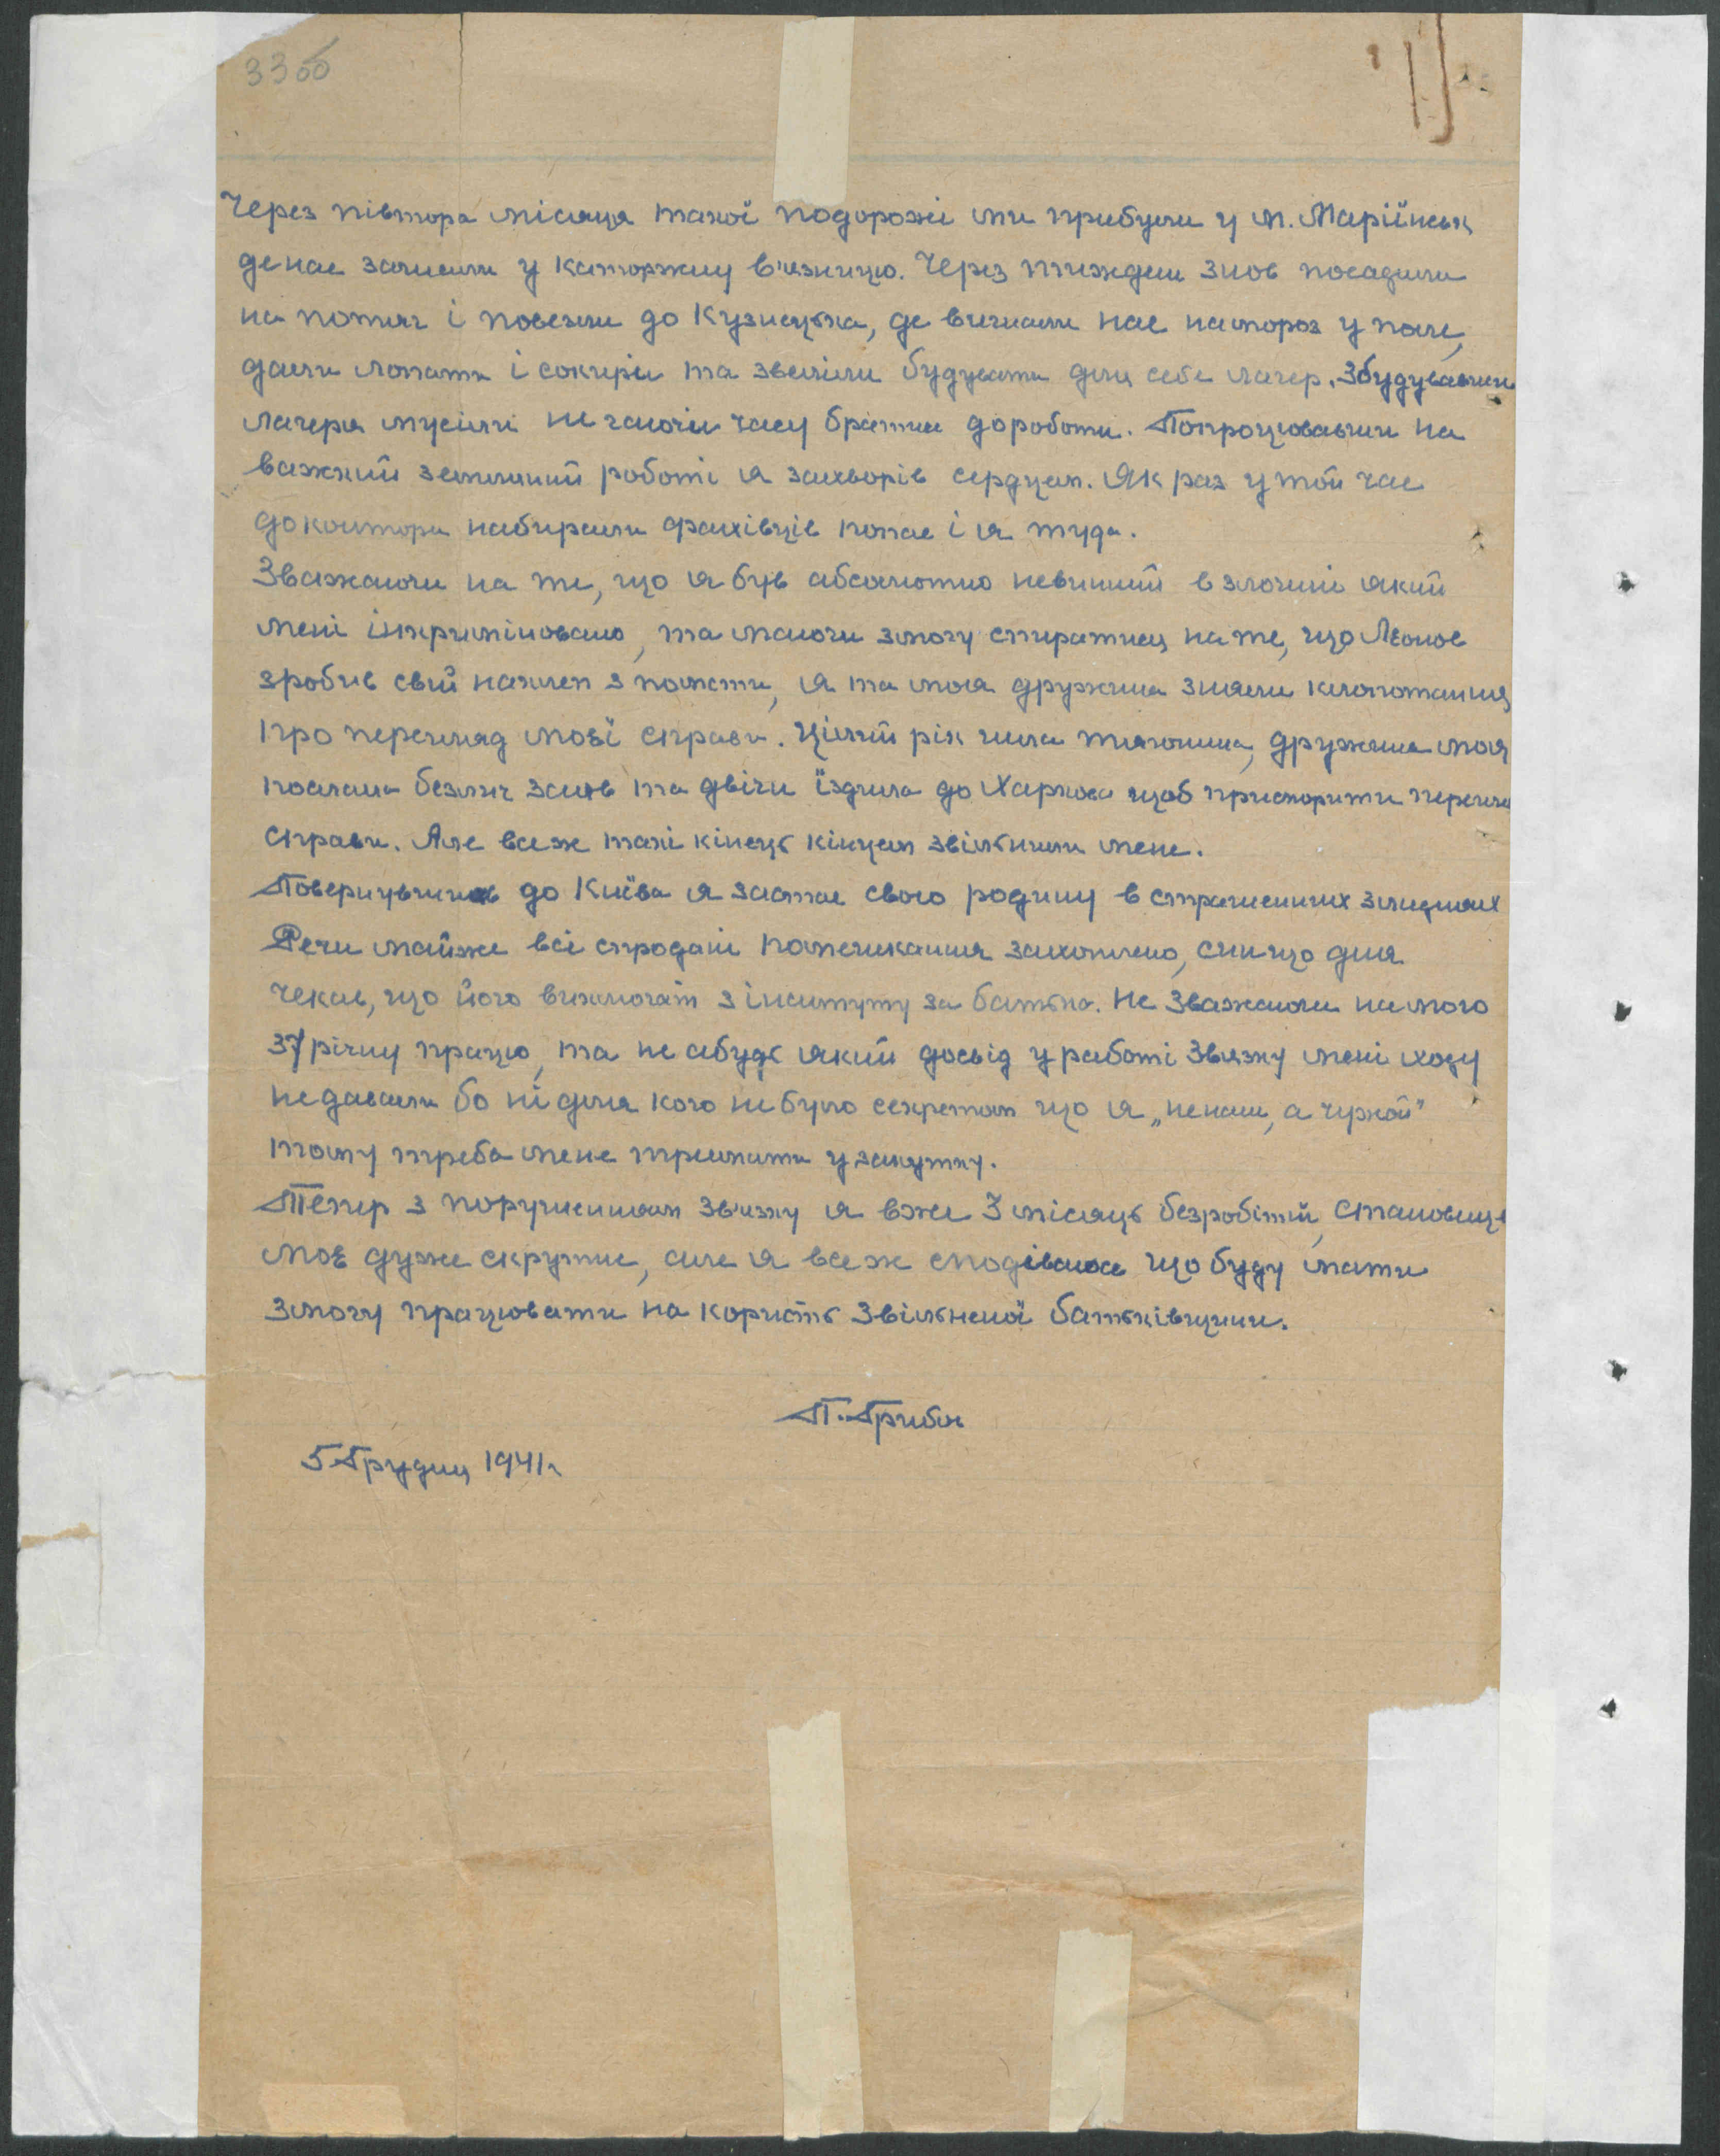 33об
Через півтора місяця такої подорожі ми прибули у м. Маріїнськ
де нас зачислили у каторжну в'язницю. Через тиждень знов посадили
на потяг і повезли до Кузнецька, де вигнали нас на мороз у поле,
дали лопати і сокири та звеліли будувати для себе лагер. Збудувавши
лагеря мусіли не гаючи часу братися до роботи. Попрацювавши на
важкий земляний роботі я захворів серцем. Як раз у той час
до контори набирали фахівців попав і я туди.
Зважаючи на те, що я був абсолютно невинний в злочині який
мені інкриміновано, та маючи змогу спиратись на те, що Леонов
зробив свій наклеп з помсти, я та моя дружина зняли клопотання
про перегляд моєї справи. Цілий рік ишла тяганина, дружина моя
послала безліч заяв та двічи їздила до Харкова щоб прискорити перегля
справи. Але все ж такі кінець кінцем звільнили мене.
Повернувшись до Київа я застав свою родину в страшенних злиднях
Речи майже всі спродані помешкання захоплено, син що дня
чекав, що його виженуть з інституту за батька. Не зважаючи на мою
37 річну працю, та не абуде який досвід у работі Звязку мені ходу
не давали бо ні для кого не було секретом що я „не наш, а чужой"
тому треба мене тримати у закутку.
Тепер з порушенням зв'язку я вже 3 місяць безробітній, становище
моє дуже скрутне, але я все ж сподіваюсь що буду мати
змогу працювати на користь Звільненої батьківщини.
П. Гриба
5 Грудня 1941 г.